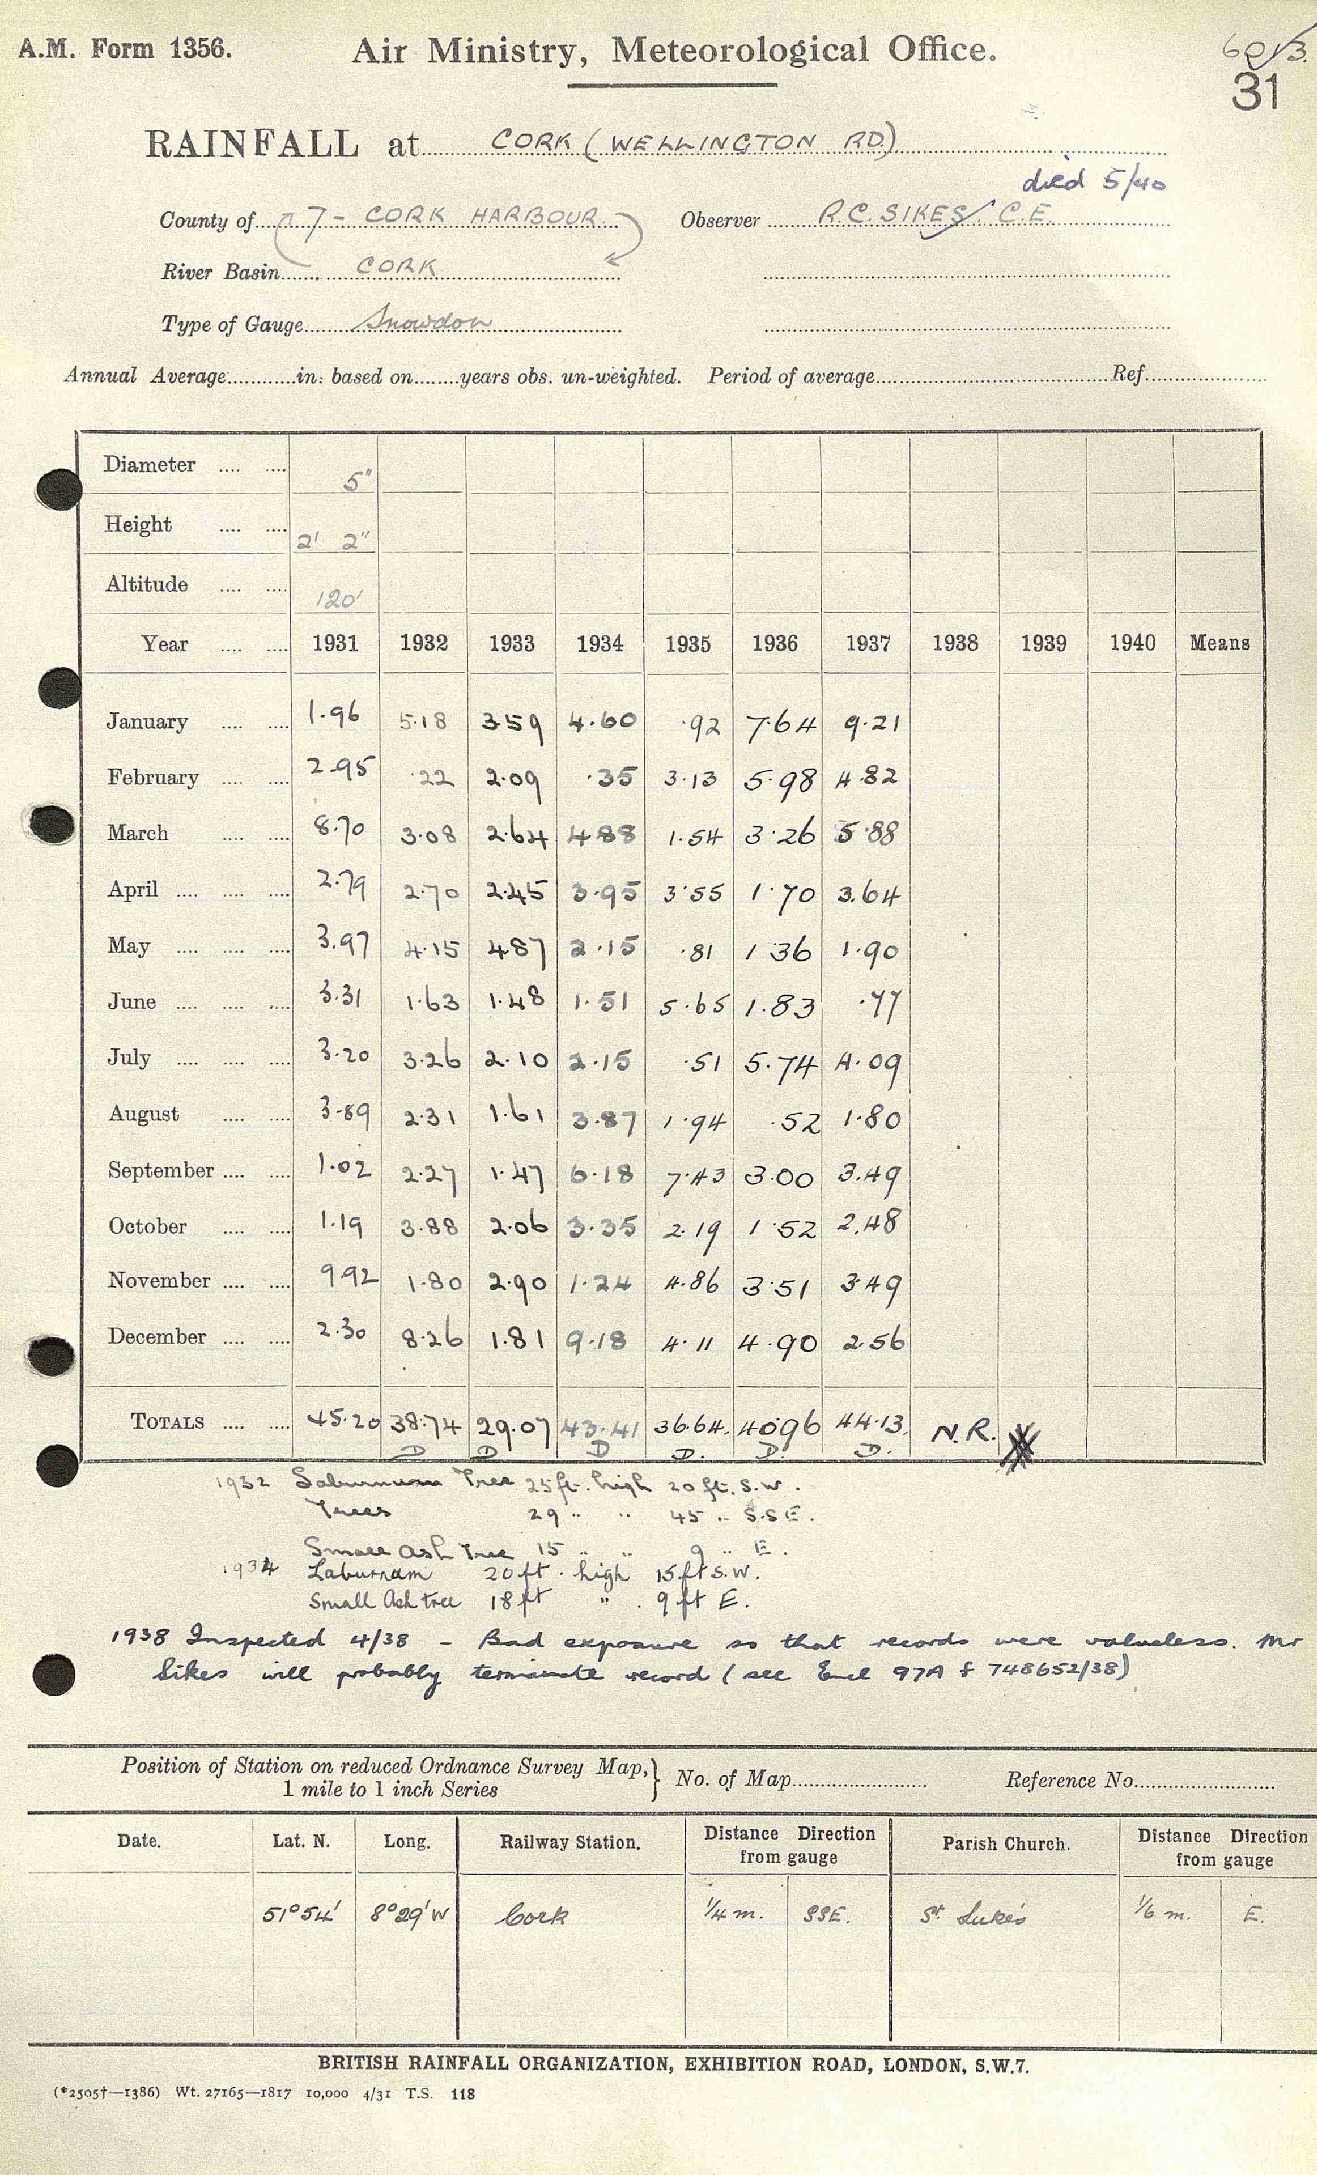 A.M. Form 1356. Air Ministry, Meteorological Office.
31
RAINFALL at CORK (WELLINGTON RD.)
died 5/40
County of 7 - CORK HARBOUR Observer R.C. SIKES C.E.
River Basin CORK
Type of Gauge Snowdon
Annual Average in. based on years obs. un-weighted. Period of average Ref.
Diameter .... .... 5"
Height .... .... 2' 2"
Altitude .... .... 120'
Year .... .... 1931 1932 1933 1934 1935 1936 1937 1938 1939 1940 Means
January .... .... 1.96 5.18 3.59 4.60 .92 7.64 9.21
February .... .... 2.95 .22 2.09 .35 3.13 5.98 4.82
March .... .... 8.70 3.08 2.64 4.88 1.54 3.26 5.88
April .... .... .... 2.79 2.70 2.45 3.95 3.55 1.70 3.64
May .... .... .... 3.97 4.15 4.87 2.15 .81 1.36 1.90
June .... .... .... 3.31 1.63 1.48 1.51 5.65 1.83 .77
July .... .... .... 3.20 3.26 2.10 2.15 .51 5.74 4.09
August .... .... 3.89 2.31 1.61 3.87 1.94 .52 1.80
September .... .... 1.02 2.27 1.47 6.18 7.43 3.00 3.49
October .... .... 1.19 3.88 2.06 3.35 2.19 1.52 2.48
November .... .... 9.92 1.80 2.90 1.24 4.86 3.51 3.49
December .... .... 2.30 8.26 1.81 9.18 4.11 4.90 2.56
TOTALS .... .... 45.20 38.74 29.07 43.41 36.64 40.96 44.13 N.R.
D D D D. D. D.
1932 Laburnum Tree 25 ft. high 20 ft. S.W.
Trees 29 " " 45 " S.S.E.
Small Ash Tree 15 " " 9 " E.
1934 Laburnam 20 ft. high 15 ft S.W.
Small Ash tree 18 ft " 9 ft E.
1938 Inspected 4/38 - Bad exposure so that records were valueless. Mr
Sikes will probably terminate record (see Encl 97A f 748652/38)
Position of Station on reduced Ordnance Survey Map,
1 mile to 1 inch Series } No. of Map Reference No.
Date. Lat. N. Long. Railway Station. Distance Direction from gauge Parish Church. Distance Direction from gauge
51°54' 8°29'W Cork 1/4 m. SSE. St Luke's 1/6 m. E.
BRITISH RAINFALL ORGANIZATION, EXHIBITION ROAD, LONDON, S.W.7.
(*2505†—1386) Wt. 27165—1817 10,000 4/31 T.S. 118